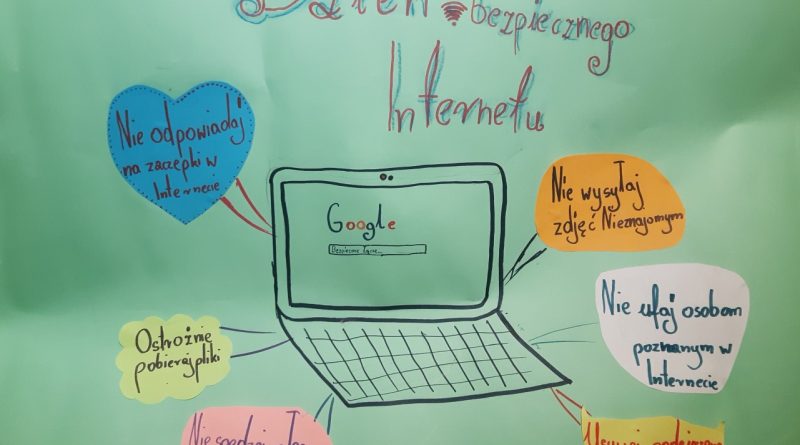 Dzień bezpiecznego
Internetu
Nie odpowiadaj
na zaczepki w
Internecie
Google
Bezpieczne łącze...
Nie wysyłaj
zdjęć Nieznajomym
Ostrożnie
pobieraj pliki
Nie ufaj osobom
poznanym w
Internecie
Nie spędzaj